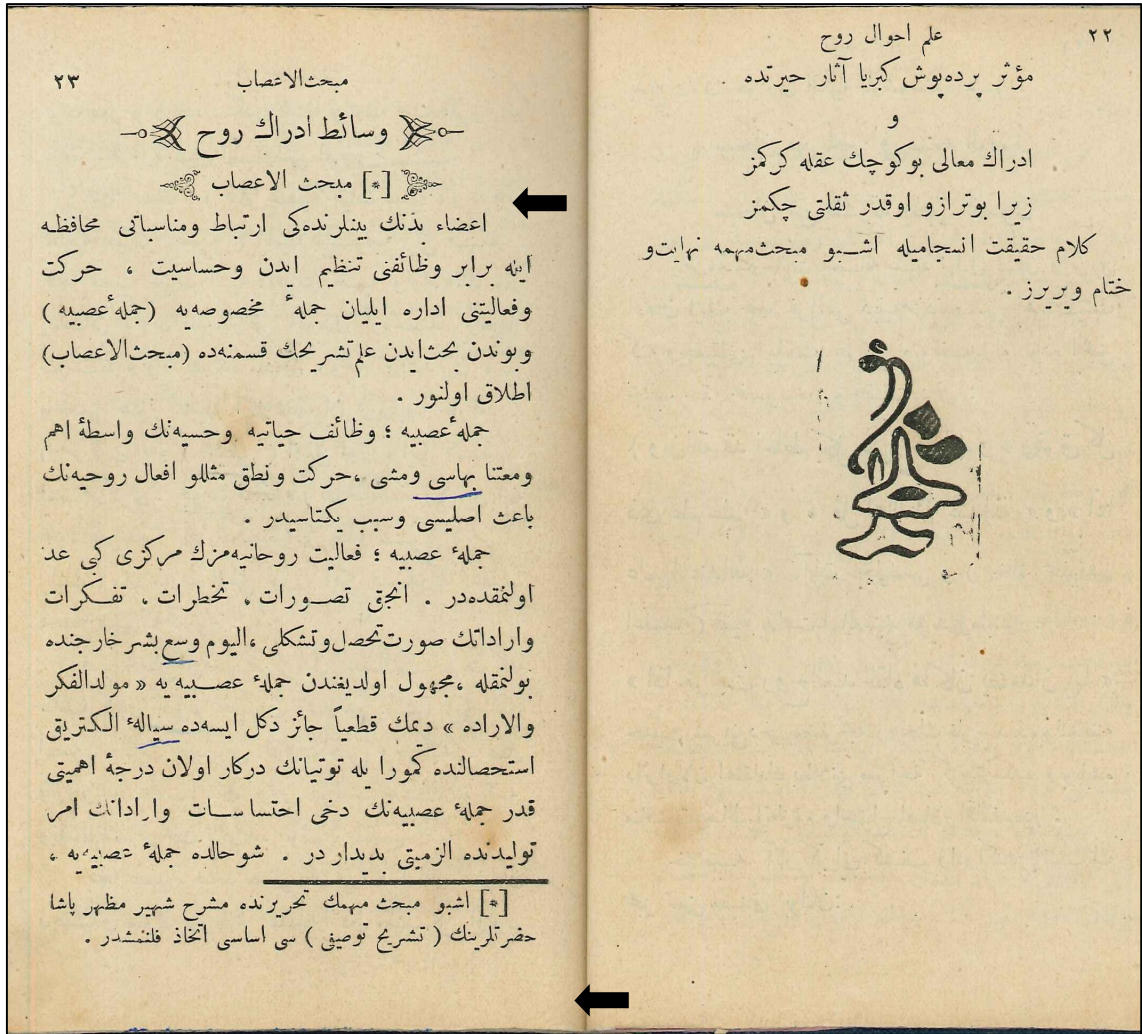 ٢٢
علم احوال روح
مؤثر پرده‌پوش كبريا آثار حيرتده .
و
ادراك معالى بوكوچك عقله كركمز
زيرا بوترازو اوقدر ثقلتى چكمز
كلام حقيقت انسجاميله اشبو مبحث‌مهمه نهايت‌و
ختام ويريرز .
مبحث‌الاعصاب
٢٣
وسائط ادراك روح
[*] مبحث الاعصاب
اعضاء بدنك بينلرنده‌كى ارتباط ومناسباتى محافظه
ايله برابر وظائفنى تنظيم ايدن وحساسيت ، حركت
وفعاليتنى اداره ايليان جملهٔ مخصوصه‌يه (جملهٔ عصبيه)
وبوندن بحث‌ايدن علم تشريحك قسمنه‌ده (مبحث‌الاعصاب)
اطلاق اولنور .
جملهٔ عصبيه ؛ وظائف حياتيه وحسيه‌نك واسطهٔ اهم
ومعتنا بهاسى ومشى ،حركت ونطق مثللو افعال روحيه‌نك
باعث اصليسى وسبب يكتاسيدر .
جملهٔ عصبيه ؛ فعاليت روحانيه‌مزك مركزى كبى عد
اولنمقده‌در . انجق تصورات ، تخطرات ، تفكرات
واراداتك صورت‌تحصل‌وتشكلى ،اليوم وسع‌بشر خارجنده
بولنمقله ،مجهول اولديغندن جملهٔ عصبيه يه « مولدالفكر
والاراده » ديمك قطعياً جائز دكل ايسه‌ده سيالهٔ الكتريق
استحصالنده كمورا يله توتيانك دركار اولان درجهٔ اهميتى
قدر جملهٔ عصبيه‌نك دخى احتساسات واراداتك امر
توليدنده الزميتى بديدار در . شو حالده جملهٔ عصبيه‌يه ،
[*] اشبو مبحث مهمك تحريرنده مشرح شهير مظهر پاشا
حضرتلرينك ( تشريح توصيفى ) سى اساسى اتخاذ قلنمشدر .